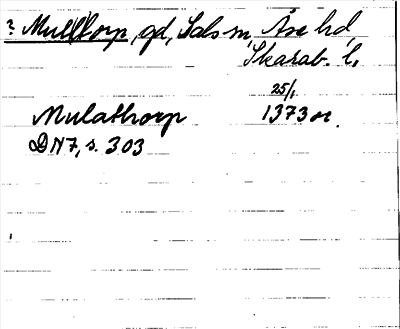 ? Mulltorp, gd, Sals sn, Åse hd,
Skarab. l.
25/1
Mulathorp 1373 or.
DN 7, s. 303